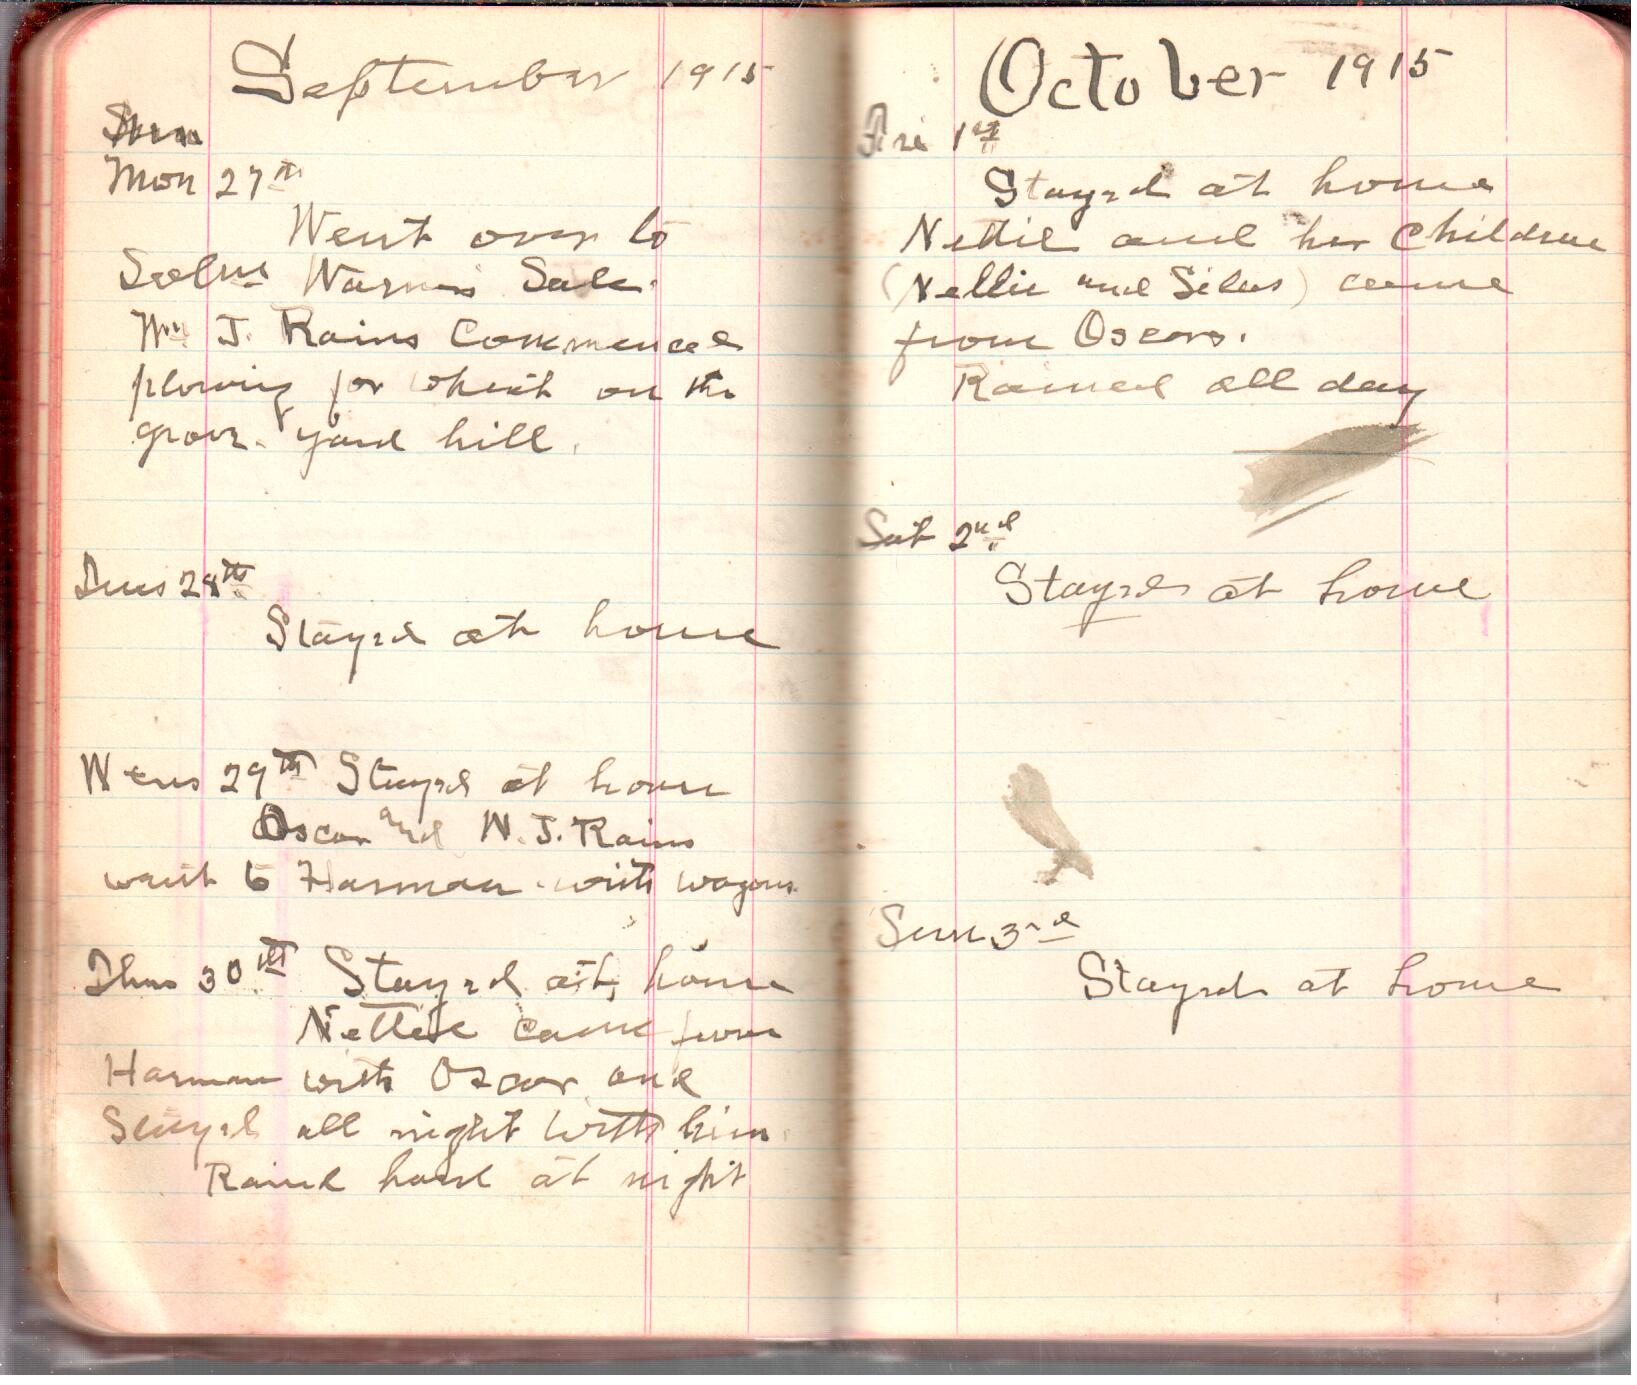 September 1915
Sun
Mon 27th
Went over to
Solms Warns Sale.
Wm J. Rains Commenced
plowing for wheat on the
grave yard hill.
Tues 28th
Stayed at home
Wens 29th Stayed at home
Oscar and W. J. Rains
went to Harman with wagons
Thus 30th Stayed at home
Nettie came from
Harman with Oscar and
Stayed all night with him.
Raind hard at night
October 1915
Fri 1st
Stayed at home
Nettie and her Children
(Nellie and Silas) came
from Oscars.
Rained all day
Sat 2nd
Stayed at home
Sun 3rd
Stayed at home